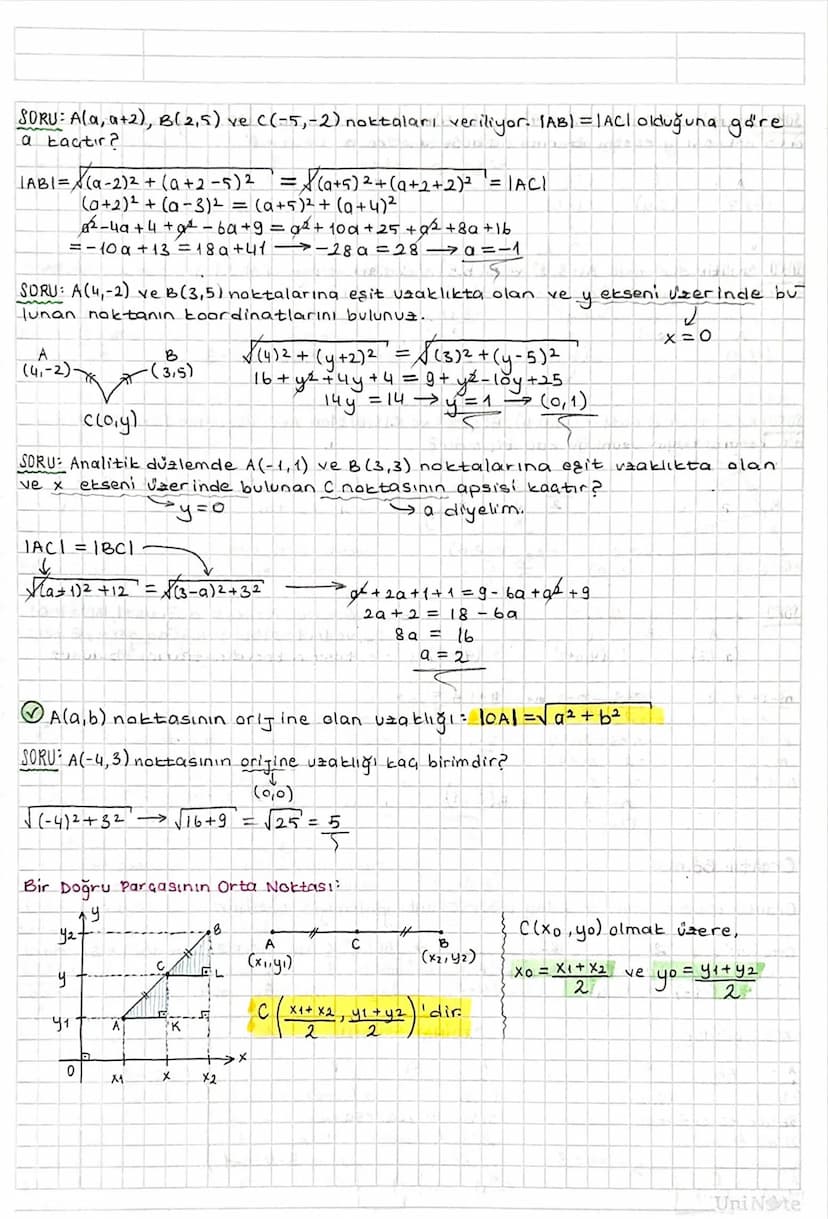 SORU: A(a, a+2), B(2,5) ve C(-5,-2) noktaları veriliyor. |AB| = |AC| olduğuna göre
a kaçtır?
|AB| = √(a-2)² + (a+2-5)² = √(a+5)² + (a+2+2)² = |AC|
(a+2)² + (a-3)² = (a+5)² + (a+4)²
a² - 4a + 4 + a² - 6a + 9 = a² + 10a + 25 + a² + 8a + 16
= -10a + 13 = 18a + 41 → -28a = 28 → a = -1
SORU: A(4,-2) ve B(3,5) noktalarına eşit uzaklıkta olan ve y ekseni üzerinde bu
lunan noktanın koordinatlarını bulunuz.
x = 0
A
(4,-2)
B
(3,5)
C(0,y)
√(4)² + (y+2)² = √(3)² + (y-5)²
16 + y² + 4y + 4 = 9 + y² - 10y + 25
14y = 14 → y = 1 → (0,1)
SORU: Analitik düzlemde A(-1,1) ve B(3,3) noktalarına eşit uzaklıkta olan
ve x ekseni üzerinde bulunan C noktasının apsisi kaçtır?
→ y = 0 → a diyelim.
|AC| = |BC|
√(a+1)² + 1² = √(3-a)² + 3² → a² + 2a + 1 + 1 = 9 - 6a + a² + 9
2a + 2 = 18 - 6a
8a = 16
a = 2
✓ A(a,b) noktasının orijine olan uzaklığı: |OA| = √a² + b²
SORU: A(-4,3) noktasının orijine uzaklığı kaç birimdir?
(0,0)
√(-4)² + 3² → √16+9 = √25 = 5
Bir Doğru Parçasının Orta Noktası:
y
y₂
y
y₁
B
C
L
A
K
O
x₁
x
x₂
x
A
C
B
(x₁,y₁)
(x₂,y₂)
C (x₁+x₂/2, y₁+y₂/2) 'dir.
C(x₀,y₀) olmak üzere,
x₀ = x₁+x₂/2 ve y₀ = y₁+y₂/2
UniNote